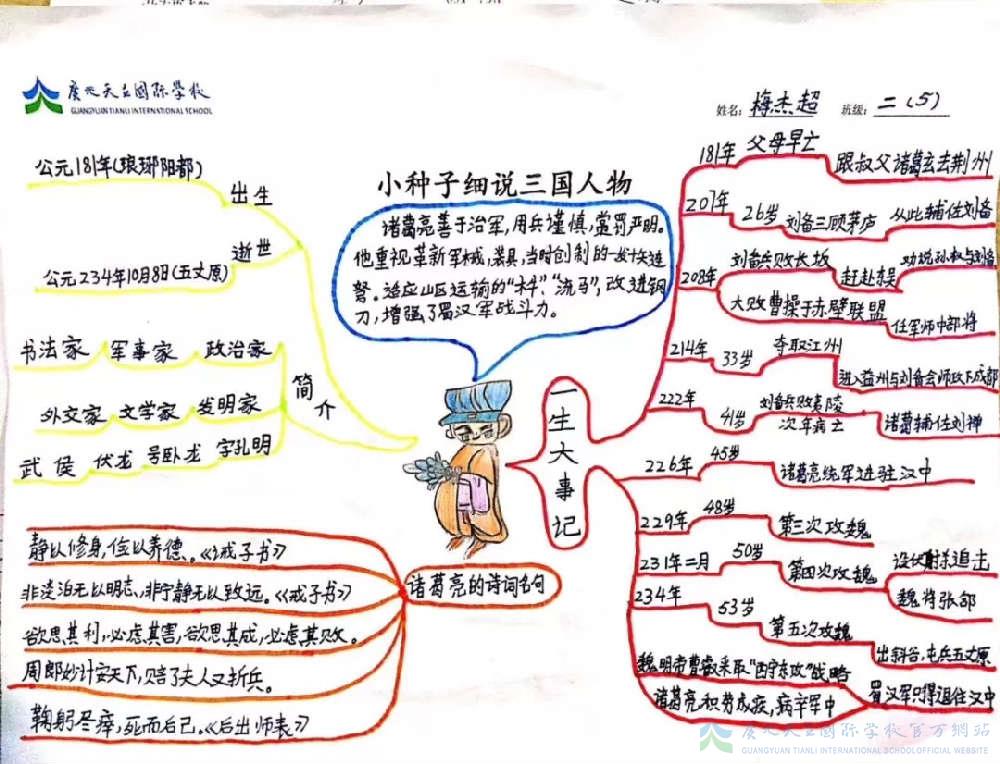 廣元天立國際學校
GUANGYUAN TIANLI INTERNATIONAL SCHOOL
姓名: 梅杰超 班级: 二(5)
小种子细说三国人物
诸葛亮善于治军,用兵谨慎,赏罚严明。
他重视革新军械、装具,当时创制的一发十矢连
弩。适应山区运输的“木牛”、“流马”,改进钢
刀,增强了蜀汉军战斗力。
公元181年(琅琊阳都)
出生
逝世
公元234年10月8日(五丈原)
简介
书法家 军事家 政治家
外交家 文学家 发明家
武侯 伏龙 号卧龙 字孔明
诸葛亮的诗词名句
静以修身,俭以养德。《诫子书》
非淡泊无以明志,非宁静无以致远。《诫子书》
欲思其利,必虑其害,欲思其成,必虑其败。
周郎妙计安天下,赔了夫人又折兵。
鞠躬尽瘁,死而后已。《后出师表》
一生大事记
181年 父母早亡 跟叔父诸葛玄去荆州
207年 26岁 刘备三顾茅庐 从此辅佐刘备
208年 刘备兵败长坂 赶赴东吴 对说孙权与刘备
大败曹操于赤壁联盟 任军师中郎将
214年 33岁 夺取江州 进入益州与刘备会师攻下成都
222年 41岁 刘备兵败夷陵 次年病亡 诸葛辅佐刘禅
226年 45岁 诸葛亮统军进驻汉中
229年 48岁 第三次攻魏
231年二月 50岁 第四次攻魏 设伏射杀追击
魏将张郃
234年 53岁 第五次攻魏 出斜谷,屯兵五丈原
魏明帝曹叡采取“西守东攻”战略
诸葛亮积劳成疾,病卒军中 蜀汉军只得退往汉中
廣元天立國際學校官方網站
GUANGYUAN TIANLI INTERNATIONAL SCHOOL OFFICIAL WEBSITE